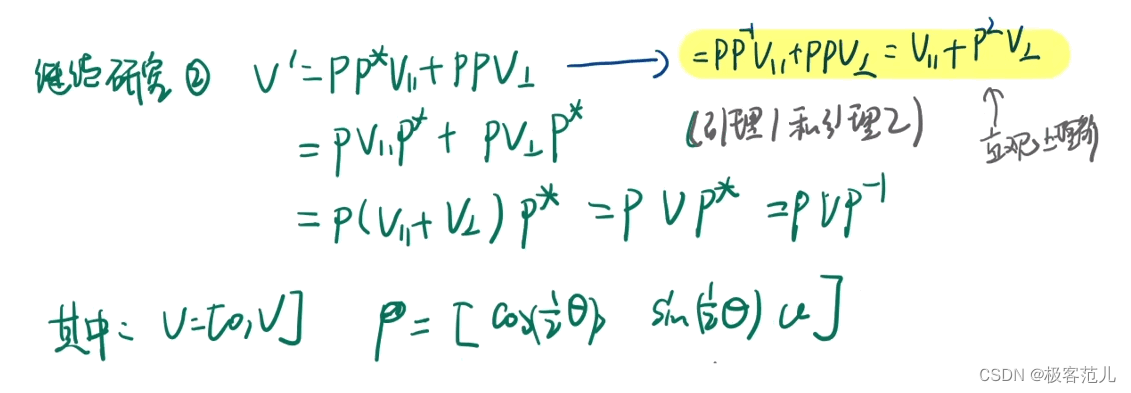 继续研究② V' = PP*V∥ + PPV⊥ → = PP⁻¹V∥ + PPV⊥ = V∥ + P²V⊥
= PV∥P* + PV⊥P* (引理1和引理2) ↑
= P(V∥ + V⊥)P* = PVP* = PVP⁻¹ 直观上理解
其中: V=[0,V] P = [cos(½θ), sin(½θ)u]
CSDN @极客范儿